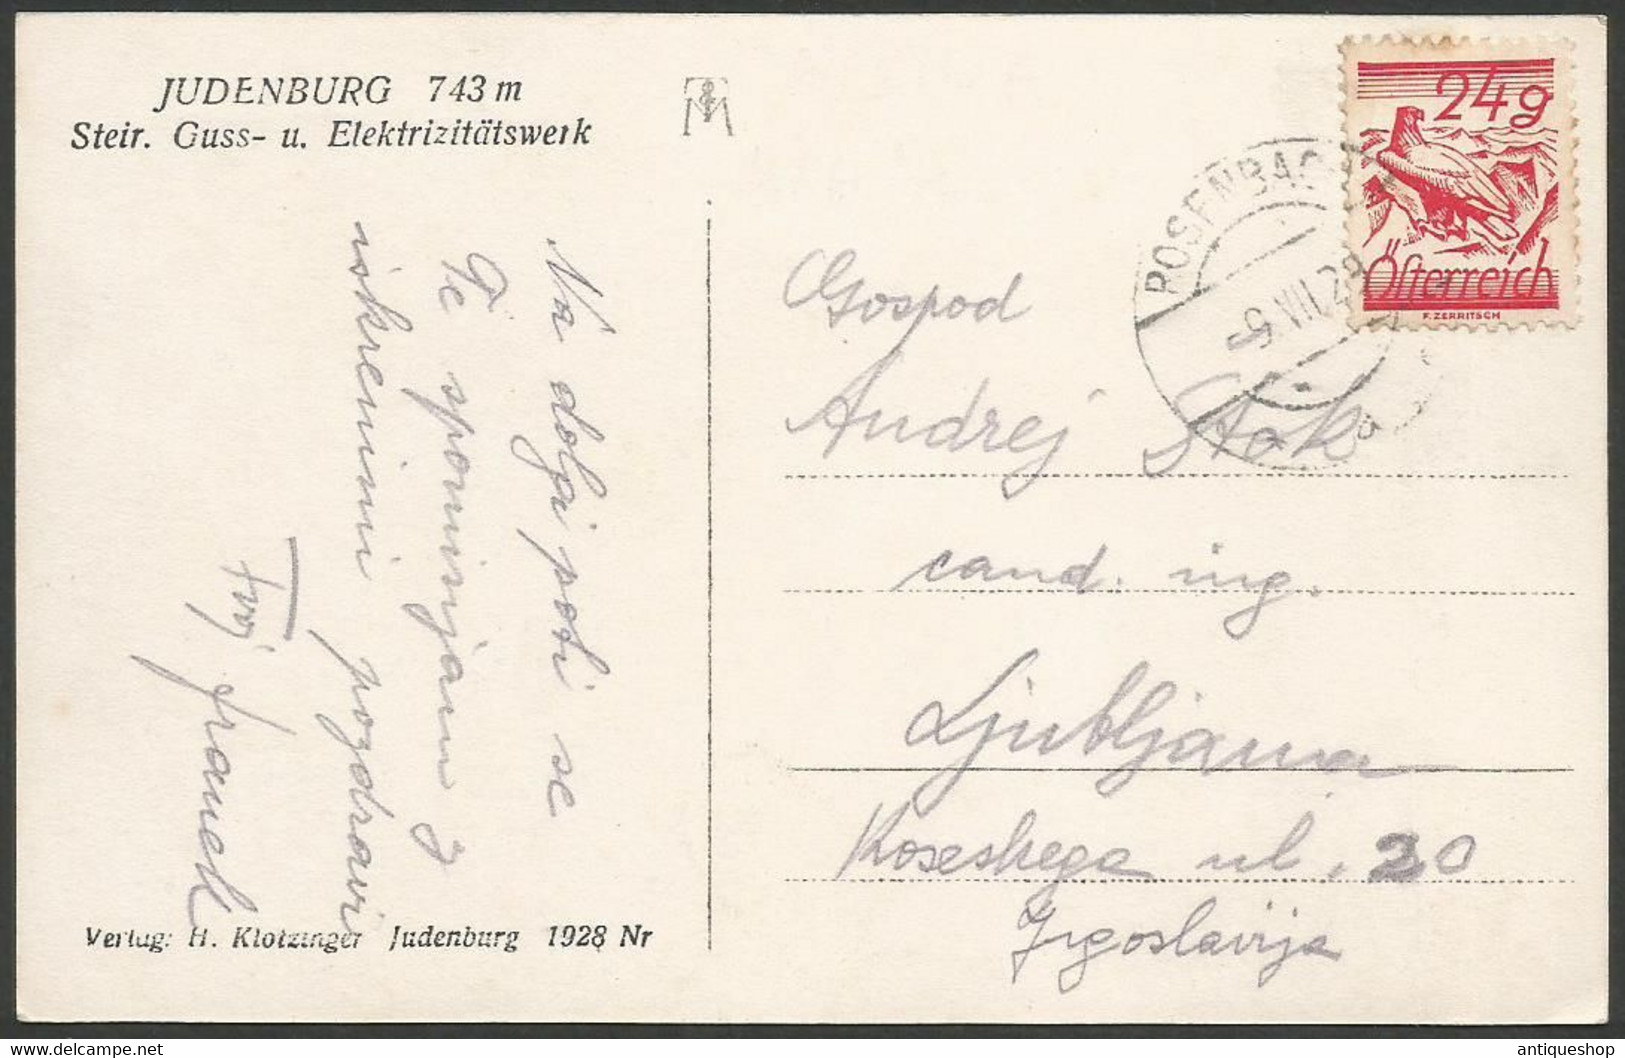 JUDENBURG 743 m
Steir. Guss- u. Elektrizitätswerk
Na dolgi poti se
Te spominjam z
iskrenimi pozdravi
Tvoj Franek
Verlag: H. Klotzinger Judenburg 1928 Nr
24g
Österreich
F. ZERRITSCH
ROSENBAC
-9.VII.29
a
Gospod
Andrej Stok
cand. ing.
Ljubljana
Koseskega ul. 20
Jugoslavija
antiqueshop